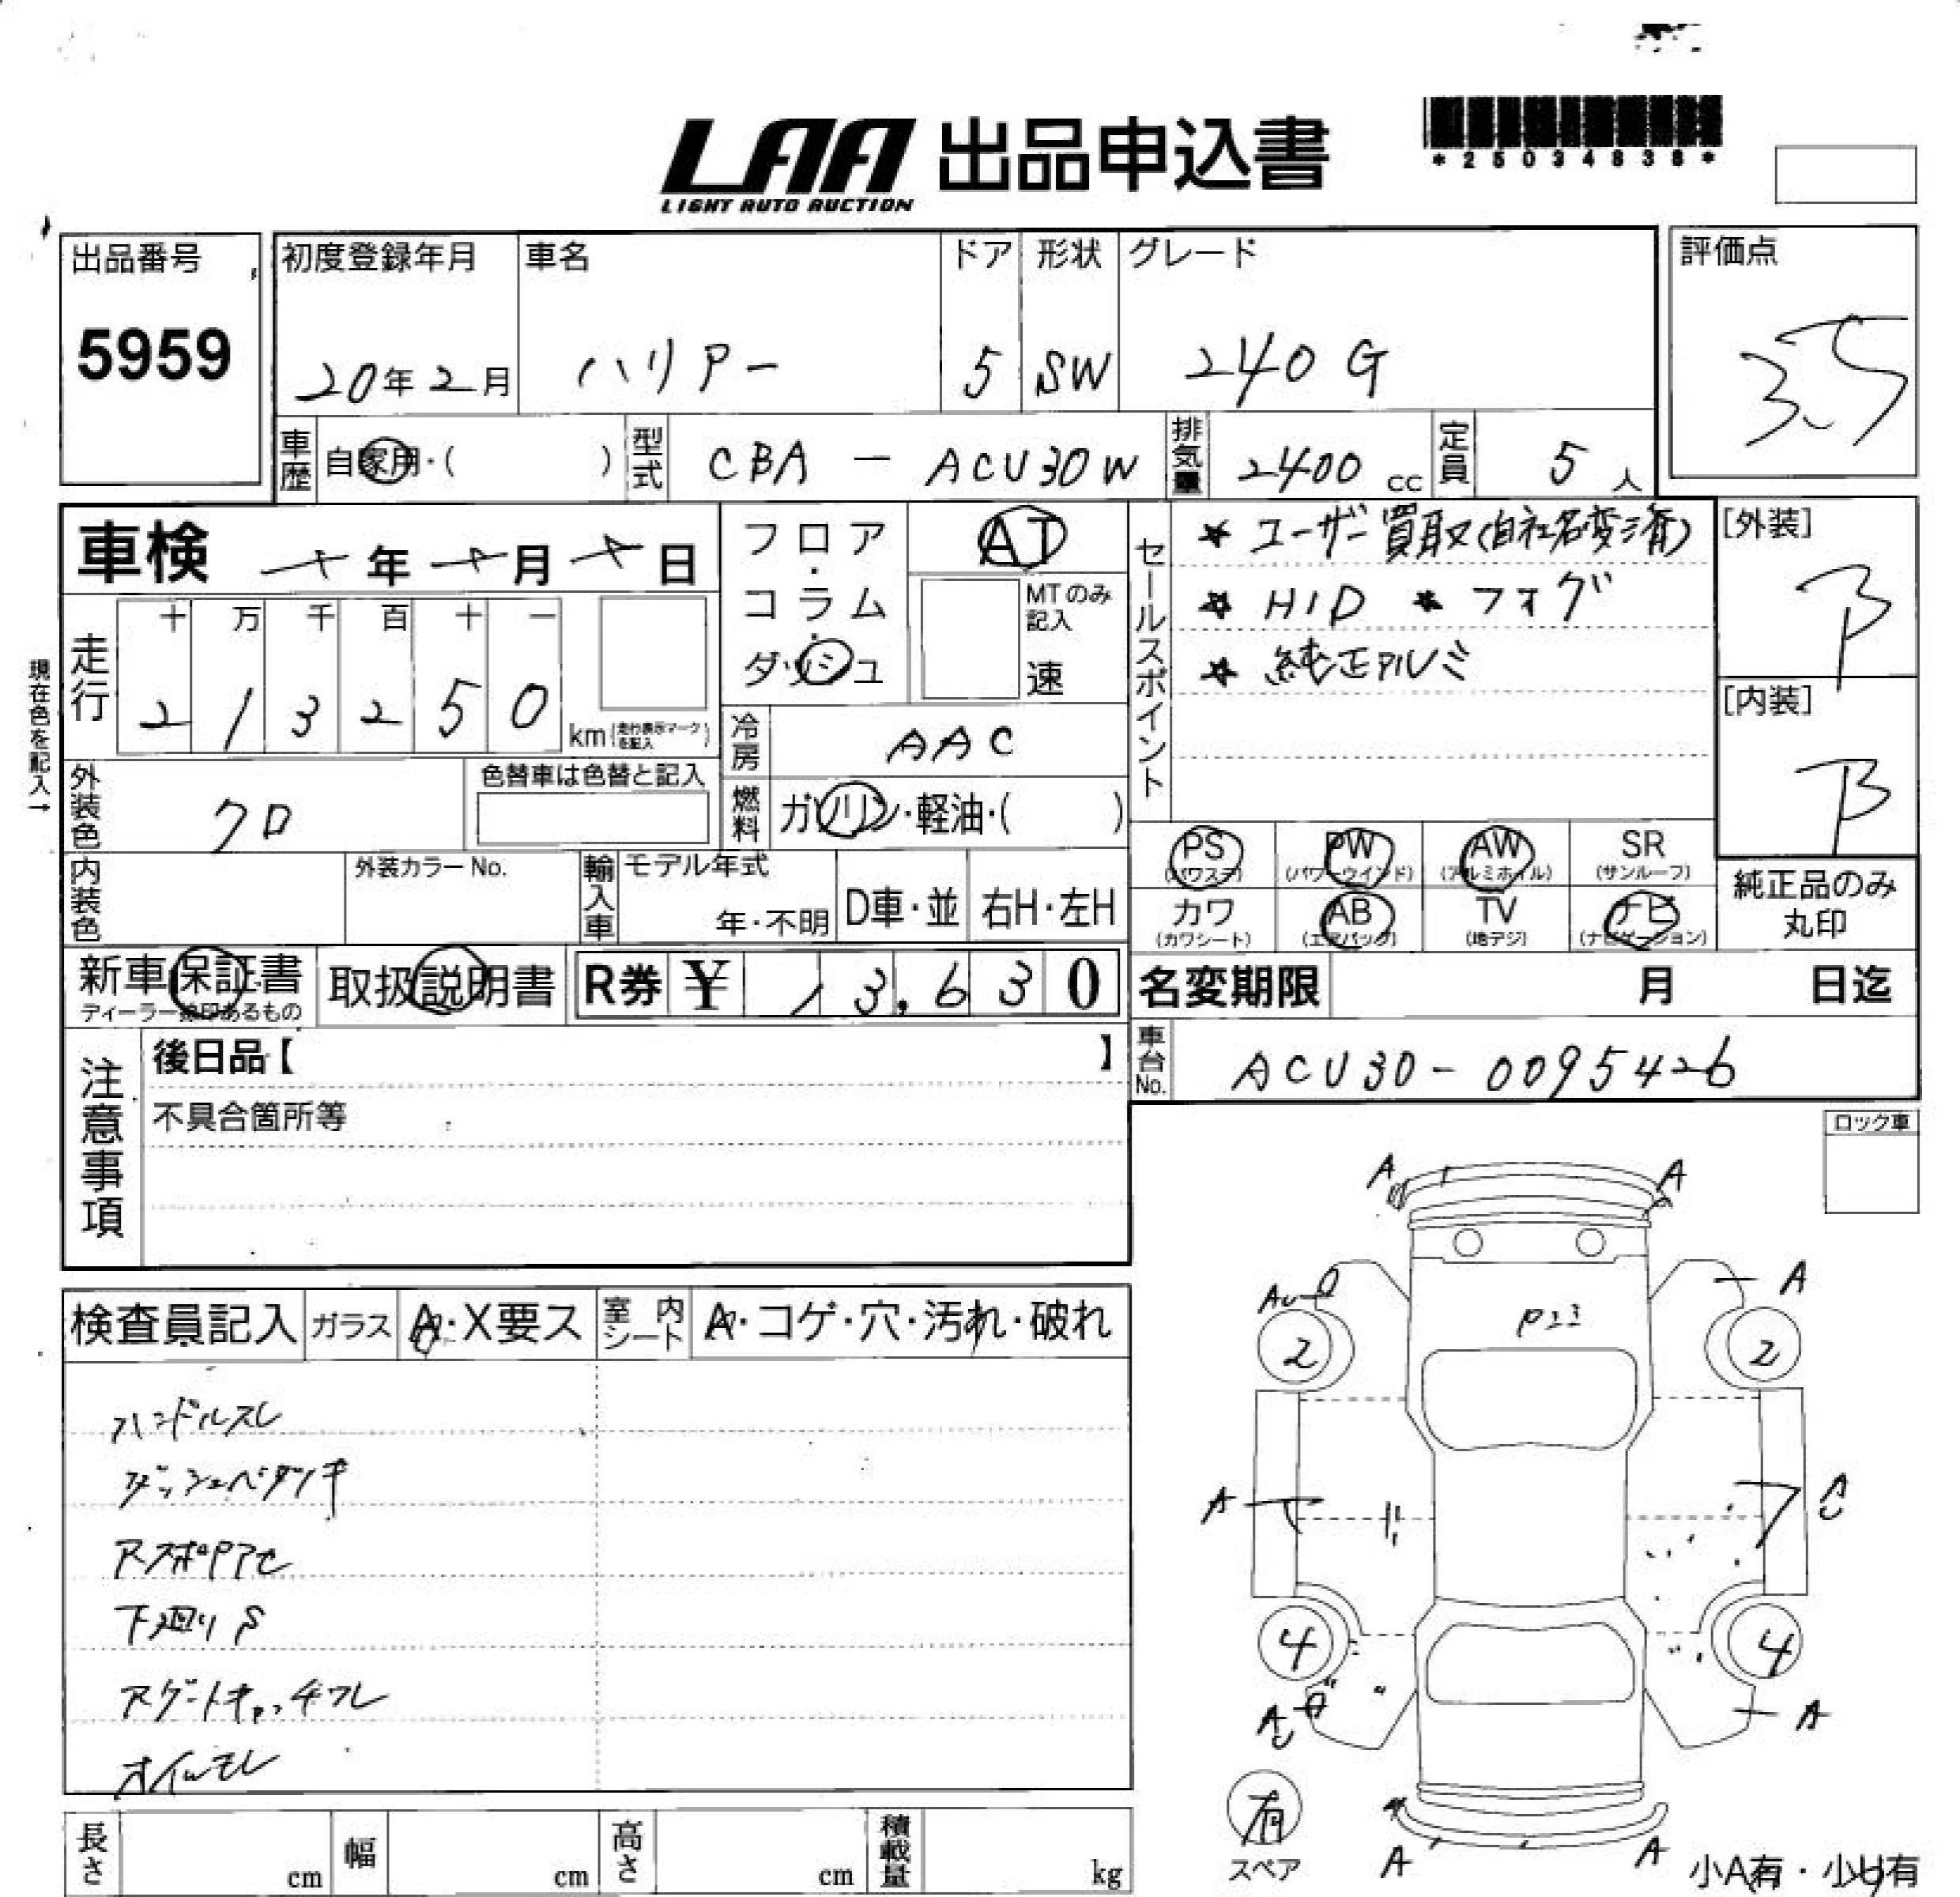 LAA 出品申込書
LIGHT AUTO AUCTION
*25034838*
出品番号
5959
初度登録年月
20年2月
車名
ハリアー
ドア
5
形状
SW
グレード
240G
評価点
3.5
車歴
自家用・( )
型式
CBA - ACU30W
排気量
2400 cc
定員
5 人
車検
年 月 日
フロア・コラム・ダッシュ
AT
MTのみ記入
速
セールスポイント
★ ユーザー買取(自社名変済)
★ HID ★ フォグ
★ 純正アルミ
[外装]
B
[内装]
B
現在色を記入→
走行
十 万 千 百 十 一
2 1 3 2 5 0
km(走行表示マークを記入)
冷房
AAC
外装色
クロ
色替車は色替と記入
燃料
ガソリン・軽油・( )
PS
(パワステ)
PW
(パワーウインド)
AW
(アルミホイル)
SR
(サンルーフ)
カワ
(カワシート)
AB
(エアバッグ)
TV
(地デジ)
ナビ
(ナビゲーション)
純正品のみ
丸印
内装色
外装カラーNo.
輸入車
モデル年式
年・不明
D車・並
右H・左H
新車保証書
取扱説明書
R券 ¥ 13,630
名変期限 月 日迄
車台No.
ACU30-0095426
注意事項
後日品【 】
不具合箇所等
ロック車
検査員記入
ガラス
A・X要ス
室内シート
A・コゲ・穴・汚れ・破れ
ハンドルスレ
ダッシュベタツキ
下廻りS
オイルモレ
A A
A
P23
2 2
A
4 4
A
A A
有
スペア
小A有・小U有
長さ cm
幅 cm
高さ cm
積載量 kg